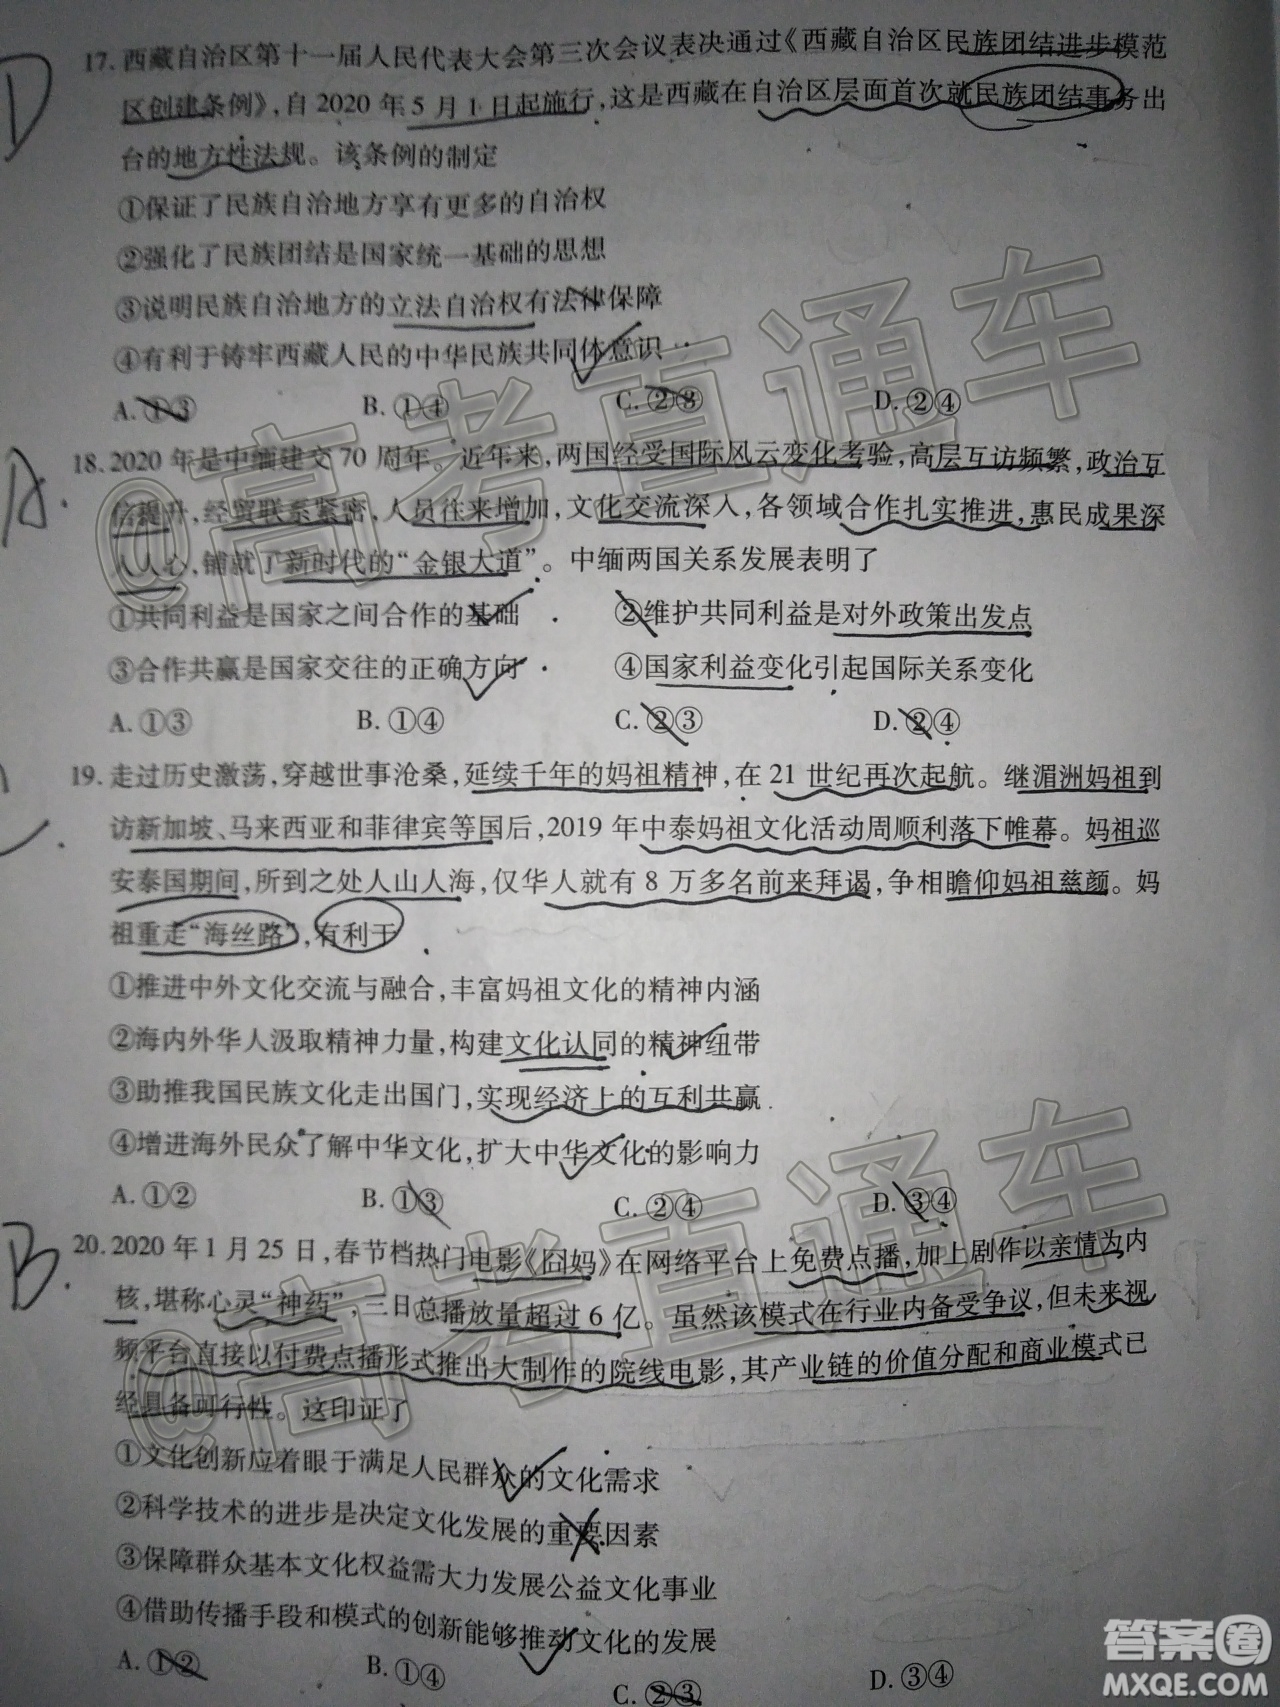 17. 西藏自治区第十一届人民代表大会第三次会议表决通过《西藏自治区民族团结进步模范
区创建条例》，自 2020 年 5 月 1 日起施行，这是西藏在自治区层面首次就民族团结事务出
台的地方性法规。该条例的制定
①保证了民族自治地方享有更多的自治权
②强化了民族团结是国家统一基础的思想
③说明民族自治地方的立法自治权有法律保障
④有利于铸牢西藏人民的中华民族共同体意识
A. ①③ B. ①④ C. ②③ D. ②④
D
18. 2020 年是中缅建交 70 周年。近年来，两国经受国际风云变化考验，高层互访频繁，政治互
信提升，经贸联系紧密，人员往来增加，文化交流深入，各领域合作扎实推进，惠民成果深
入人心，铺就了新时代的“金银大道”。中缅两国关系发展表明了
①共同利益是国家之间合作的基础 ②维护共同利益是对外政策出发点
③合作共赢是国家交往的正确方向 ④国家利益变化引起国际关系变化
A. ①③ B. ①④ C. ②③ D. ②④
A.
19. 走过历史激荡，穿越世事沧桑，延续千年的妈祖精神，在 21 世纪再次起航。继湄洲妈祖到
访新加坡、马来西亚和菲律宾等国后，2019 年中泰妈祖文化活动周顺利落下帷幕。妈祖巡
安泰国期间，所到之处人山人海，仅华人就有 8 万多名前来拜谒，争相瞻仰妈祖慈颜。妈
祖重走“海丝路”，有利于
①推进中外文化交流与融合，丰富妈祖文化的精神内涵
②海内外华人汲取精神力量，构建文化认同的精神纽带
③助推我国民族文化走出国门，实现经济上的互利共赢
④增进海外民众了解中华文化，扩大中华文化的影响力
A. ①② B. ①③ C. ②④ D. ③④
20. 2020 年 1 月 25 日，春节档热门电影《囧妈》在网络平台上免费点播，加上剧作以亲情为内
核，堪称心灵“神药”，三日总播放量超过 6 亿。虽然该模式在行业内备受争议，但未来视
频平台直接以付费点播形式推出大制作的院线电影，其产业链的价值分配和商业模式已
经具备可行性。这印证了
①文化创新应着眼于满足人民群众的文化需求
②科学技术的进步是决定文化发展的重要因素
③保障群众基本文化权益需大力发展公益文化事业
④借助传播手段和模式的创新能够推动文化的发展
A. ①② B. ①④ C. ②③ D. ③④
B.
@高考直通车
@高考直通车
答案圈
MXQE.COM